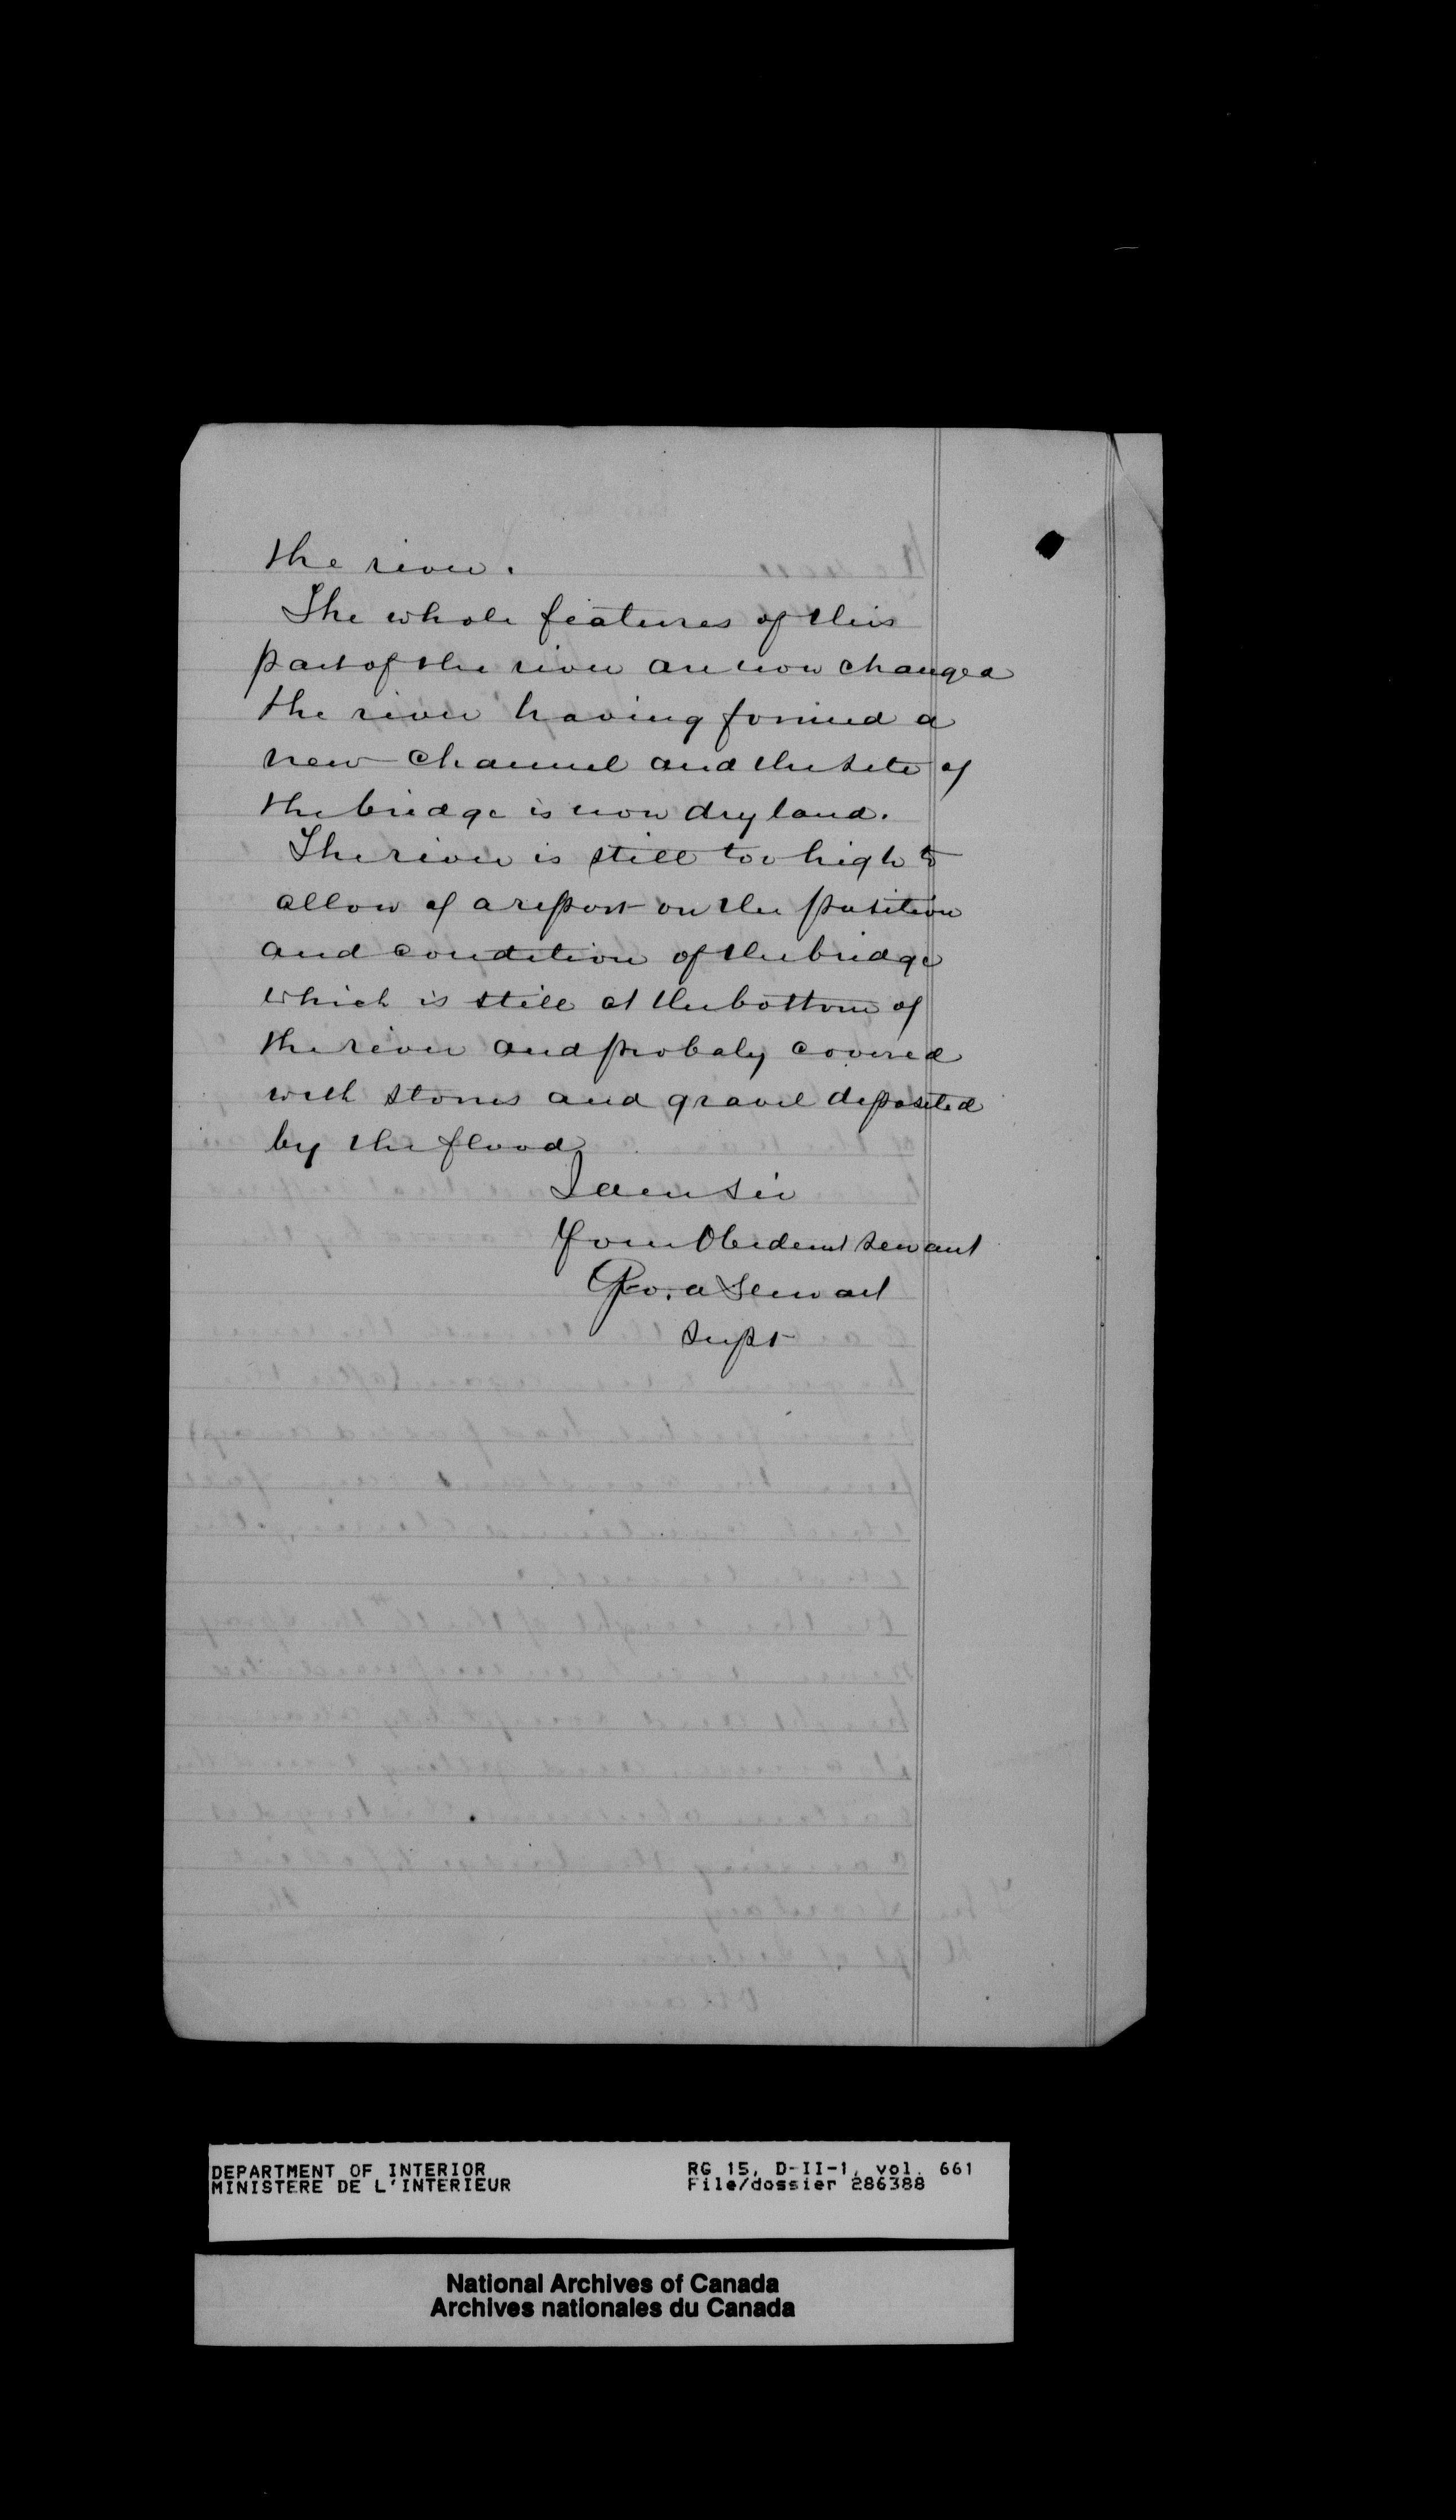 the river.
The whole features of this
part of the river are now changed
the river having formed a
new channel and the site of
the bridge is now dry land.
The river is still too high to
allow of a report on the position
and condition of the bridge
which is still at the bottom of
the river and probaly covered
with stones and gravel deposited
by the flood
I am sir
Your Obedient servant
Geo. a Stewart
Supt
DEPARTMENT OF INTERIOR RG 15, D-II-1, vol. 661
MINISTERE DE L'INTERIEUR File/dossier 286388
National Archives of Canada
Archives nationales du Canada